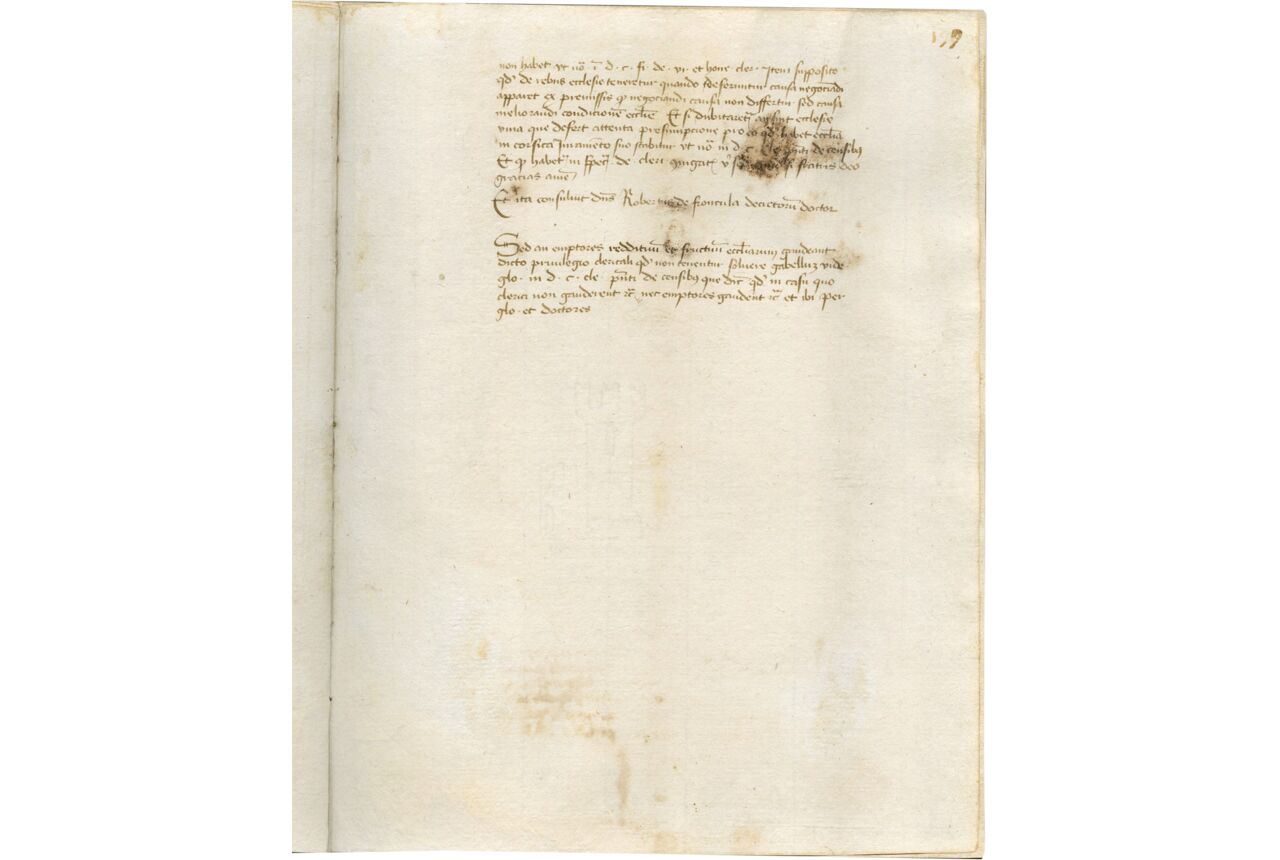 9
non habet vt nō ī d. c. fi. de. vi. et hone. cler. Item supposito
qd' de rebus ecclesie teneretur quando deferuntur causa negociādi
apparet ex premissis q negociandi causa non differtur sed causa
meliorandi condicionē eccl'ie Et si dubitaret' an sint ecclesie
vina que defert attenta presumpcione pro eo qd' habet eccl'ia
in corsica Iuramēto suo stabitur vt nō in d. c. de censibus
Et q habet' in de. cleri deo
gracias amē
Et ita consuluit dn̄s Robertus de froncula decretorū doctor
Sed an emptores reddituū et fructuū eccl'iarum gaudeant
dicto priuilegio clericali qd' non tenentur soluere gabellaz vide
glo. in d. c. cle. pn̄ti de censibus que dic' qd' in casu quo
clerici non gauderent rc̄ nec emptores gaudent rc̄ et ibi per
glo. et doctores